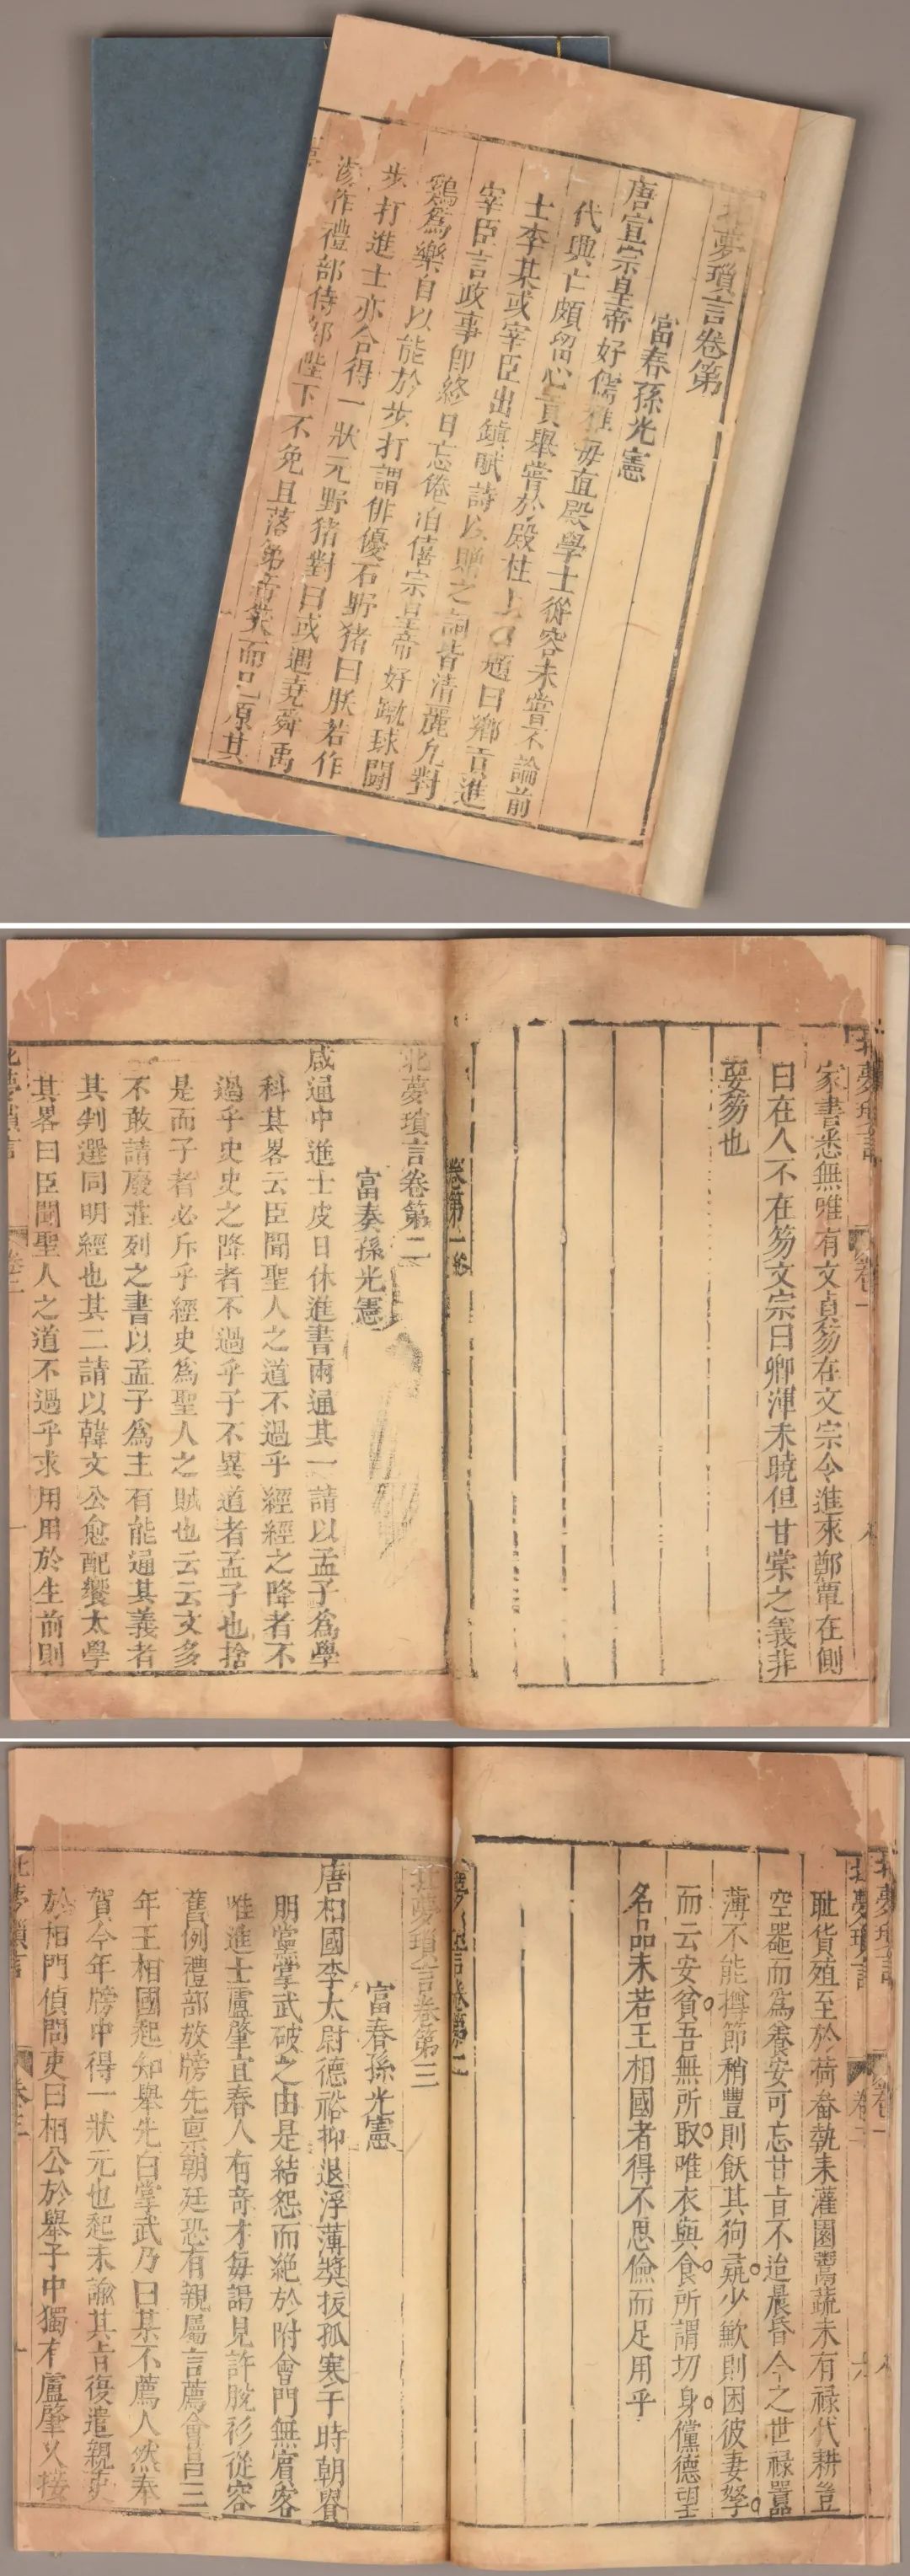 北夢瑣言卷第
富春孫光憲
唐宣宗皇帝好儒雅每直殿學士從容未嘗不論前
代興亡頗留心貢舉嘗於殿柱上自題曰鄉貢進
士李某或宰臣出鎮賦詩以贈之詞皆清麗凡對
宰臣言政事即終日忘倦洎僖宗皇帝好蹴球鬪
鷄為樂自以能於步打謂俳優石野猪曰朕若作
步打進士亦合得一狀元野猪對曰或遇堯舜禹
湯作禮部侍郎陛下不免且落第帝笑而已原其
北夢瑣言
卷一
家書悉無唯有文貞笏在文宗令進來鄭覃在側
曰在人不在笏文宗曰卿渾未曉但甘棠之義非
要笏也
卷第一終
北夢瑣言卷第二
富春孫光憲
咸通中進士皮日休進書兩通其一請以孟子為學
科其畧云臣聞聖人之道不過乎經經之降者不
過乎史史之降者不過乎子子不異道者孟子也捨
是而子者必斥乎經史為聖人之賊也云云文多
不敢請廢莊列之書以孟子為主有能通其義者
其判選同明經也其二請以韓文公愈配饗太學
其畧曰臣聞聖人之道不過乎求用用於生前則
北夢瑣言
卷二
一
北夢瑣言
卷一
北夢瑣言
卷二
耻貨殖至於荷畚執耒灌園鬻蔬未有祿代耕豈
空器而為養安可忘甘旨不迨晨昏今之世祿囂
薄不能撙節稍豐則飫其狗彘少歉則困彼妻孥
而云安貧吾無所取唯衣與食所謂切身儻德望
名品未若王相國者得不思儉而足用乎
北夢瑣言卷第三
富春孫光憲
唐相國李太尉德裕抑退浮薄奬拔孤寒于時朝貴
朋黨掌武破之由是結怨而絶於附會門無賓客
唯進士盧肇宜春人有奇才每謁見許脫衫從容
舊例禮部放牓先禀朝廷恐有親屬言薦會昌三
年王相國起知舉先白掌武乃曰某不薦人然奉
賀今年牓中得一狀元也起未諭其旨復遣親吏
於相門偵問吏曰相公於舉子中獨有盧肇久接
北夢瑣言
卷三
一